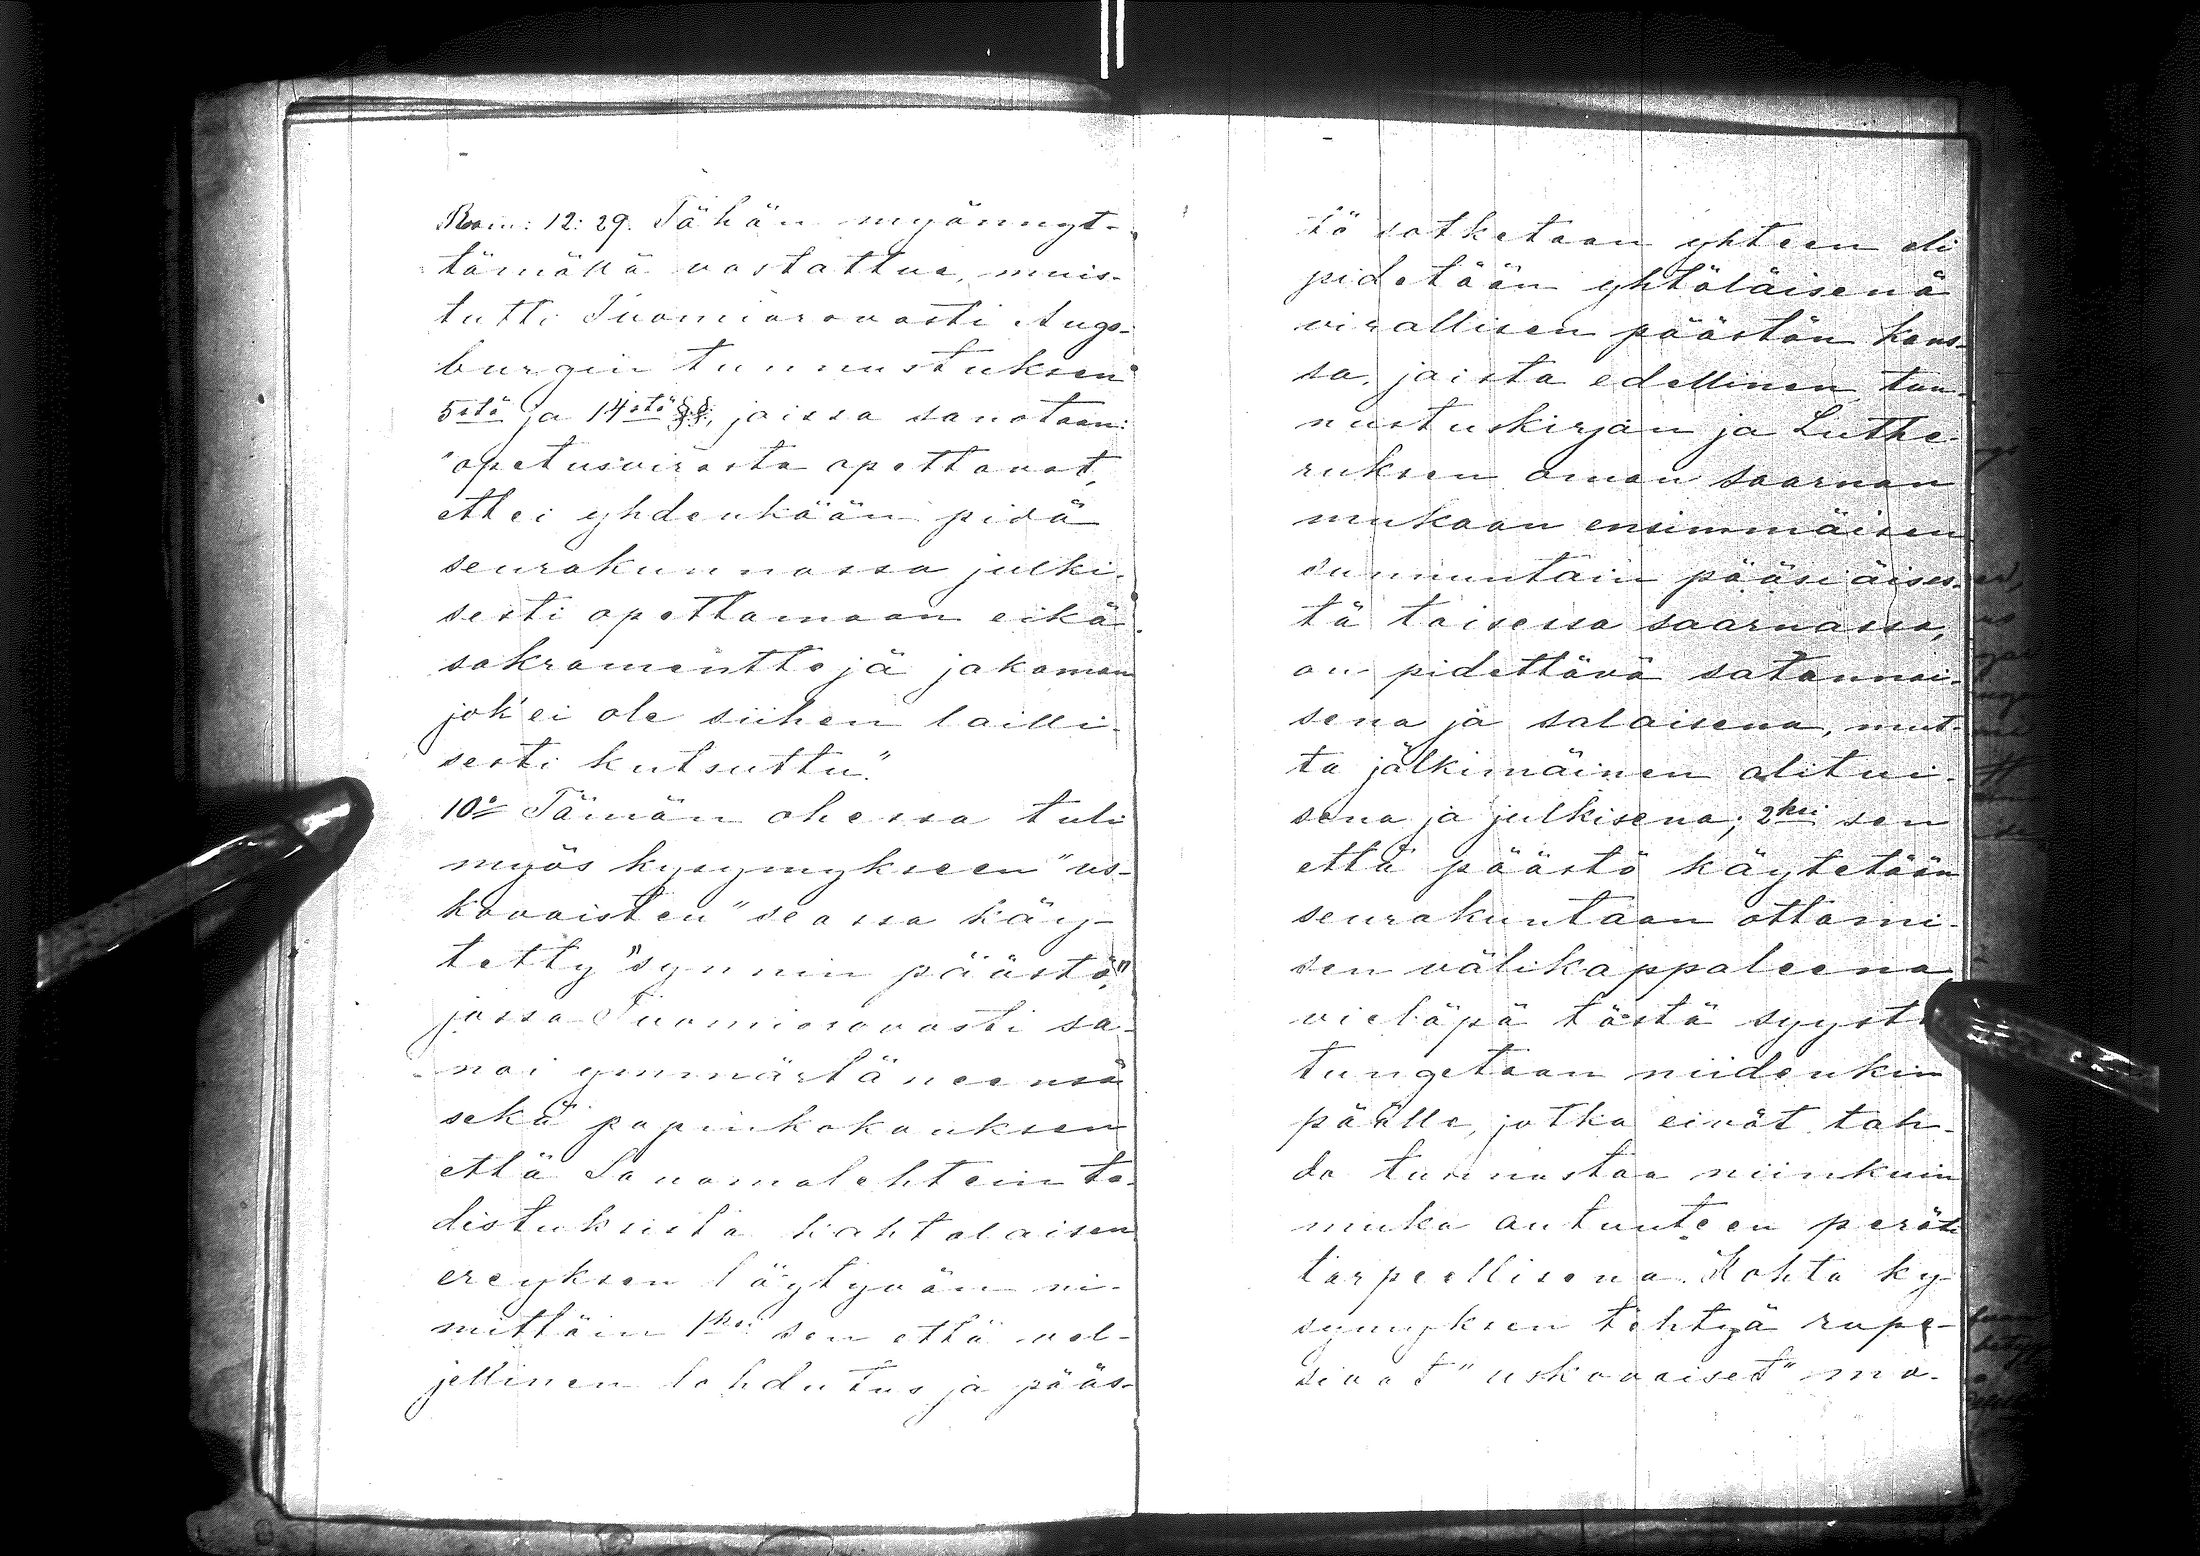 Rom: 12: 29. Tähän myönnyt-
tämällä vastattua, muis-
tutti Tuomiorovasti Augs-
burgin tunnustuksen
5stä ja 14stä §§, joissa sanotaan:
"opetusvirasta opettavat,
ettei yhdenkään pidä
seurakunnassa julki-
sesti opettamaan eikä
sakramenttejä jakaman
jok'ei ole siihen lailli-
sesti kutsuttu."
10:o Tämän ohessa tuli
myös kysymykseen "us-
kovaisten" seassa käy-
tetty "synnin päästö,"
jossa Tuomiorovasti sa-
noi ymmärtäneensä
sekä papinkokouksen
että Sanomalehtein to-
distuksista kahtalaisen
ereyksen löytyvän ni-
mittäin 1ksi sen että vel-
jellinen lohdutus ja pääs-
tö sotketaan yhteen eli
pidetään yhtäläisenä
virallisen päästön kans-
sa, joista edellinen tun-
nustuskirjan ja Luthe-
ruksen oman saarnan
mukaan ensimmäisen
sunnuntain pääsiäises-
tä toisessa saarnassa,
on pidettävä satunnai-
sena ja salaisena, mut-
ta jälkimäinen alitui-
sena ja julkisena; 2ksi sen
että päästö käytetään
seurakuntaan ottami-
sen välikappaleena
vieläpä tästä syystä
tungetaan niidenkin
päälle, jotka eivät tah-
do tunnustaa niinkuin
muka autuuteen peräti
tarpeellisena. Kohta ky-
symyksen tehtyä rupe-
sivat "uskovaiset" mo-